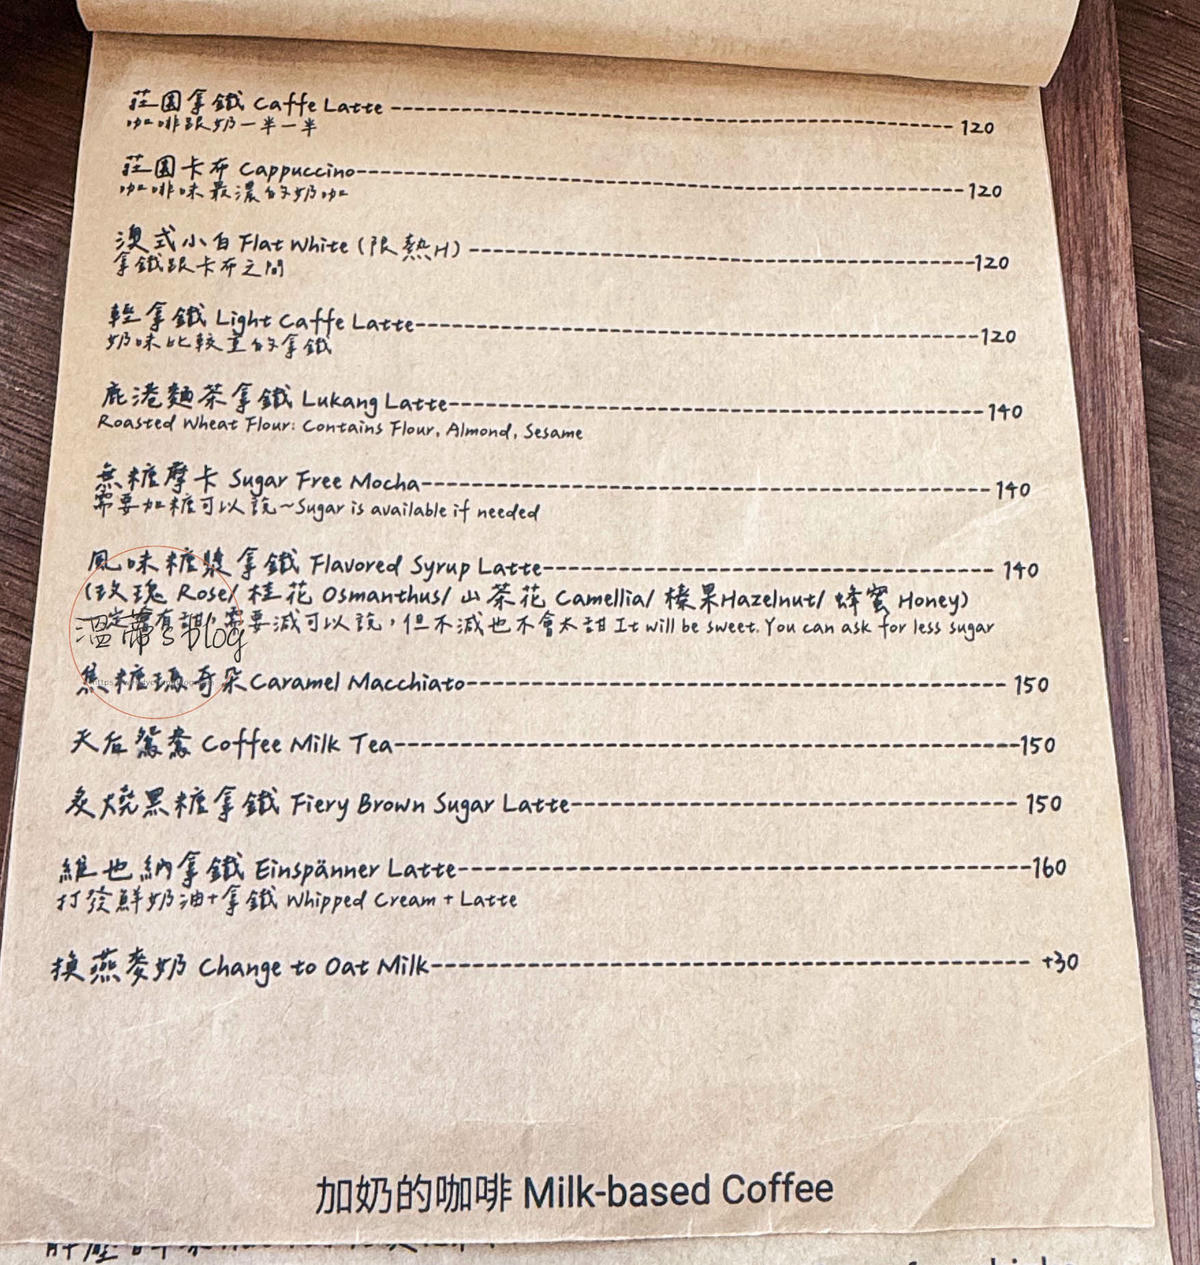 莊園拿鐵 Caffe Latte ---------- 120
咖啡跟奶一半一半
莊園卡布 Cappuccino ---------- 120
咖啡味最濃的奶咖
澳式小白 Flat White (限熱H) ---------- 120
拿鐵跟卡布之間
輕拿鐵 Light Caffe Latte ---------- 120
奶味比較重的拿鐵
鹿港麵茶拿鐵 Lukang Latte ---------- 140
Roasted Wheat Flour: Contains Flour, Almond, Sesame
無糖摩卡 Sugar Free Mocha ---------- 140
需要加糖可以說~Sugar is available if needed
風味糖漿拿鐵 Flavored Syrup Latte ---------- 140
(玫瑰 Rose/ 桂花 Osmanthus/ 山茶花 Camellia/ 榛果Hazelnut/ 蜂蜜 Honey)
一定會有甜,需要減可以說,但不減也不會太甜 It will be sweet. You can ask for less sugar
's blog
焦糖瑪奇朵Caramel Macchiato ---------- 150
天后鴛鴦 Coffee Milk Tea ---------- 150
炙燒黑糖拿鐵 Fiery Brown Sugar Latte ---------- 150
維也納拿鐵 Einspänner Latte ---------- 160
打發鮮奶油+拿鐵 Whipped Cream + Latte
換燕麥奶 Change to Oat Milk ---------- +30
加奶的咖啡 Milk-based Coffee